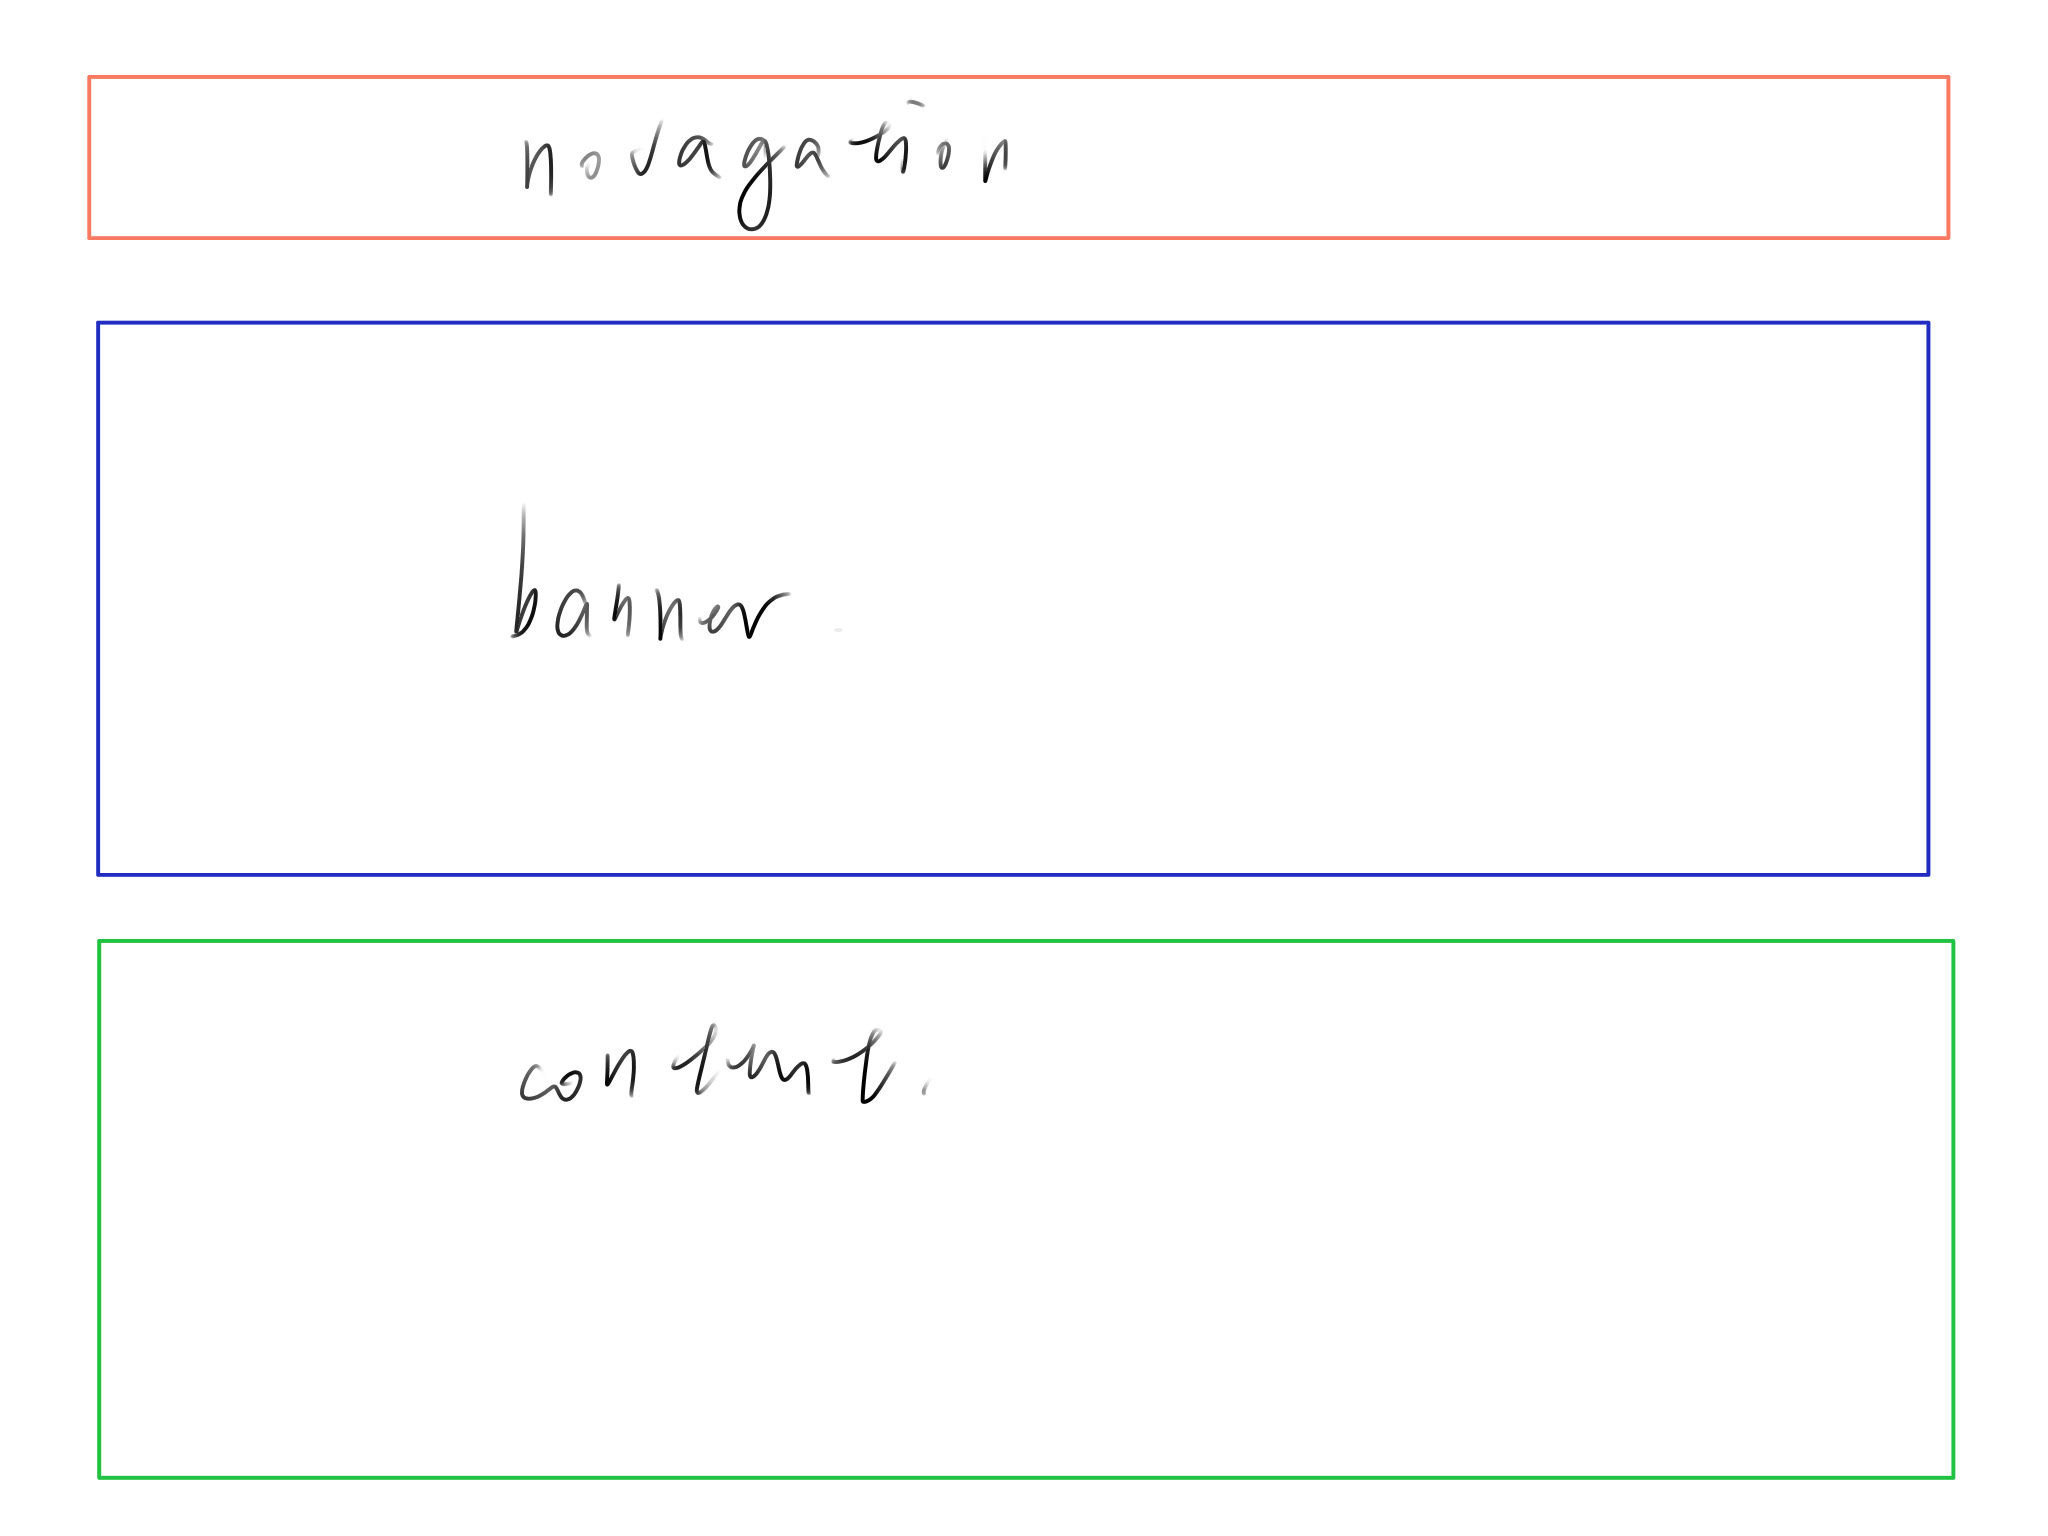 novagation
banner
content.